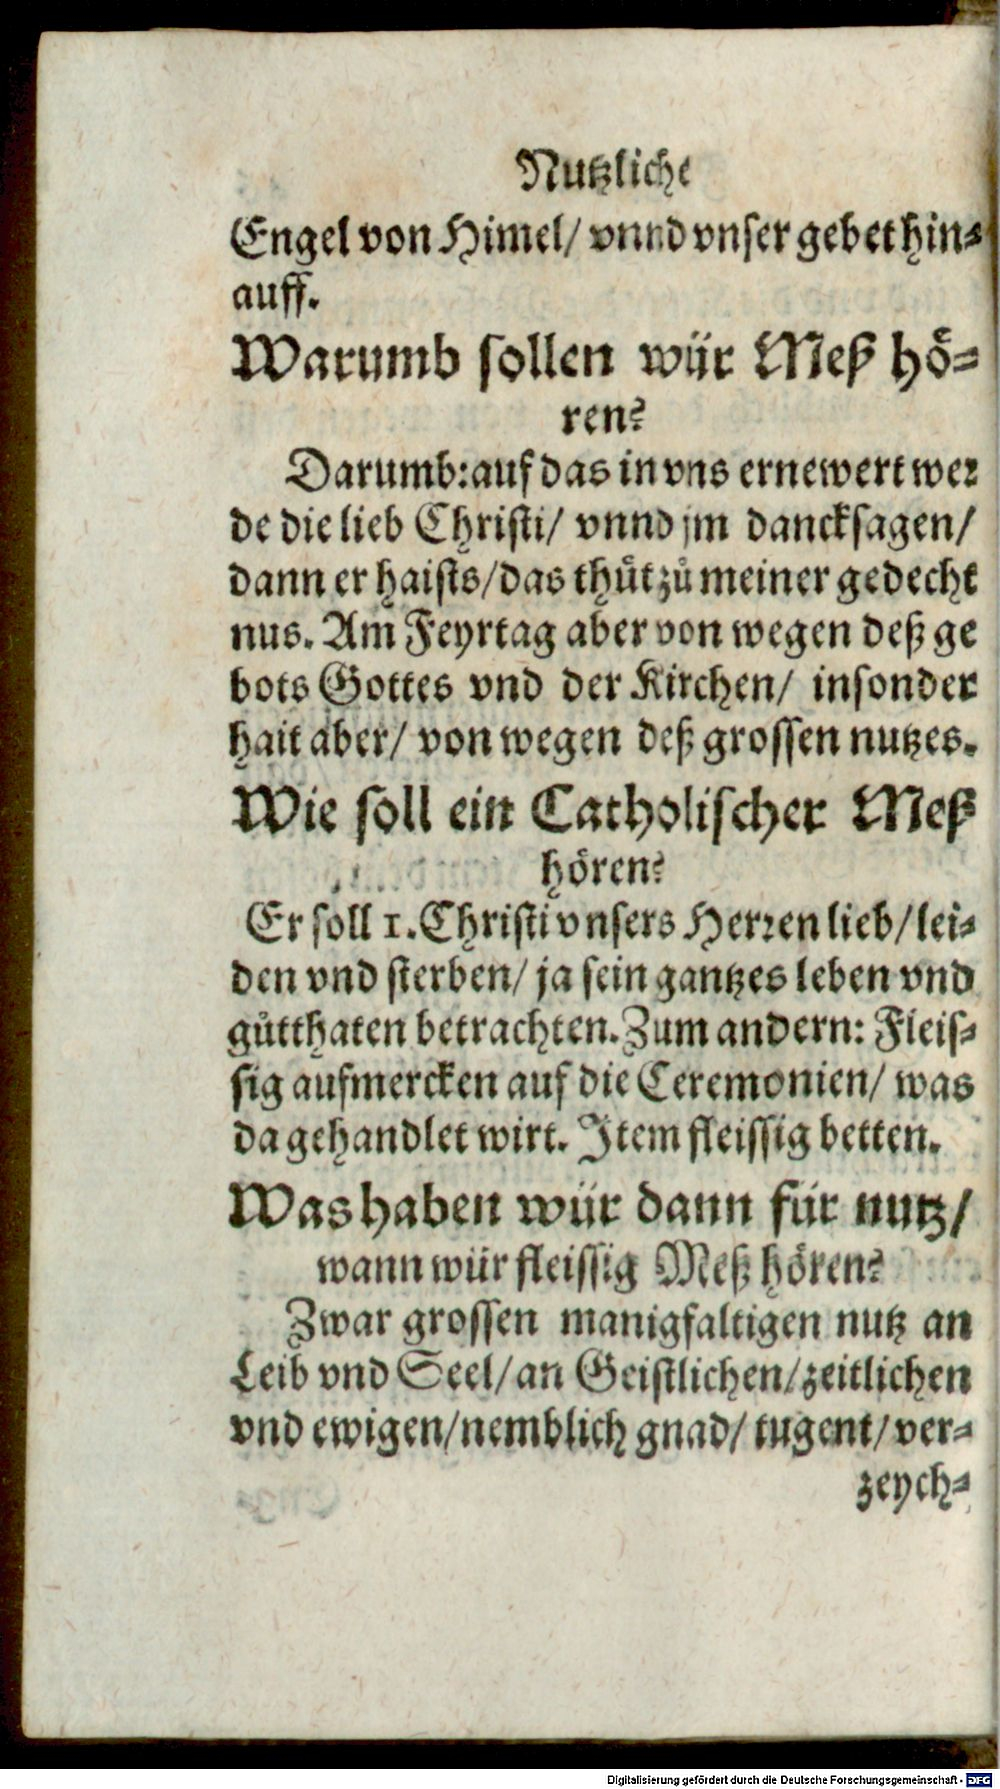 Nutzliche
Engel von Himel/ vnnd vnser gebet hin-
auff.
Warumb sollen wür Meß hö-
ren?
Darumb: auf das in vns ernewert wer
de die lieb Christi/ vnnd jm dancksagen/
dann er haists/ das thůt zů meiner gedecht
nus. Am Feyrtag aber von wegen deß ge
bots Gottes vnd der Kirchen/ insonder
hait aber/ von wegen deß grossen nutzes.
Wie soll ein Catholischer Meß
hören?
Er soll 1. Christi vnsers Herren lieb/ lei-
den vnd sterben/ ja sein gantzes leben vnd
gůtthaten betrachten. Zum andern: Fleis-
sig aufmercken auf die Ceremonien/ was
da gehandlet wirt. Item fleissig betten.
Was haben wür dann für nutz/
wann wür fleissig Meß hören?
Zwar grossen manigfaltigen nutz an
Leib vnd Seel/ an Geistlichen/ zeitlichen
vnd ewigen/ nemblich gnad/ tugent/ ver-
zeych-
Digitalisierung gefördert durch die Deutsche Forschungsgemeinschaft - DFG